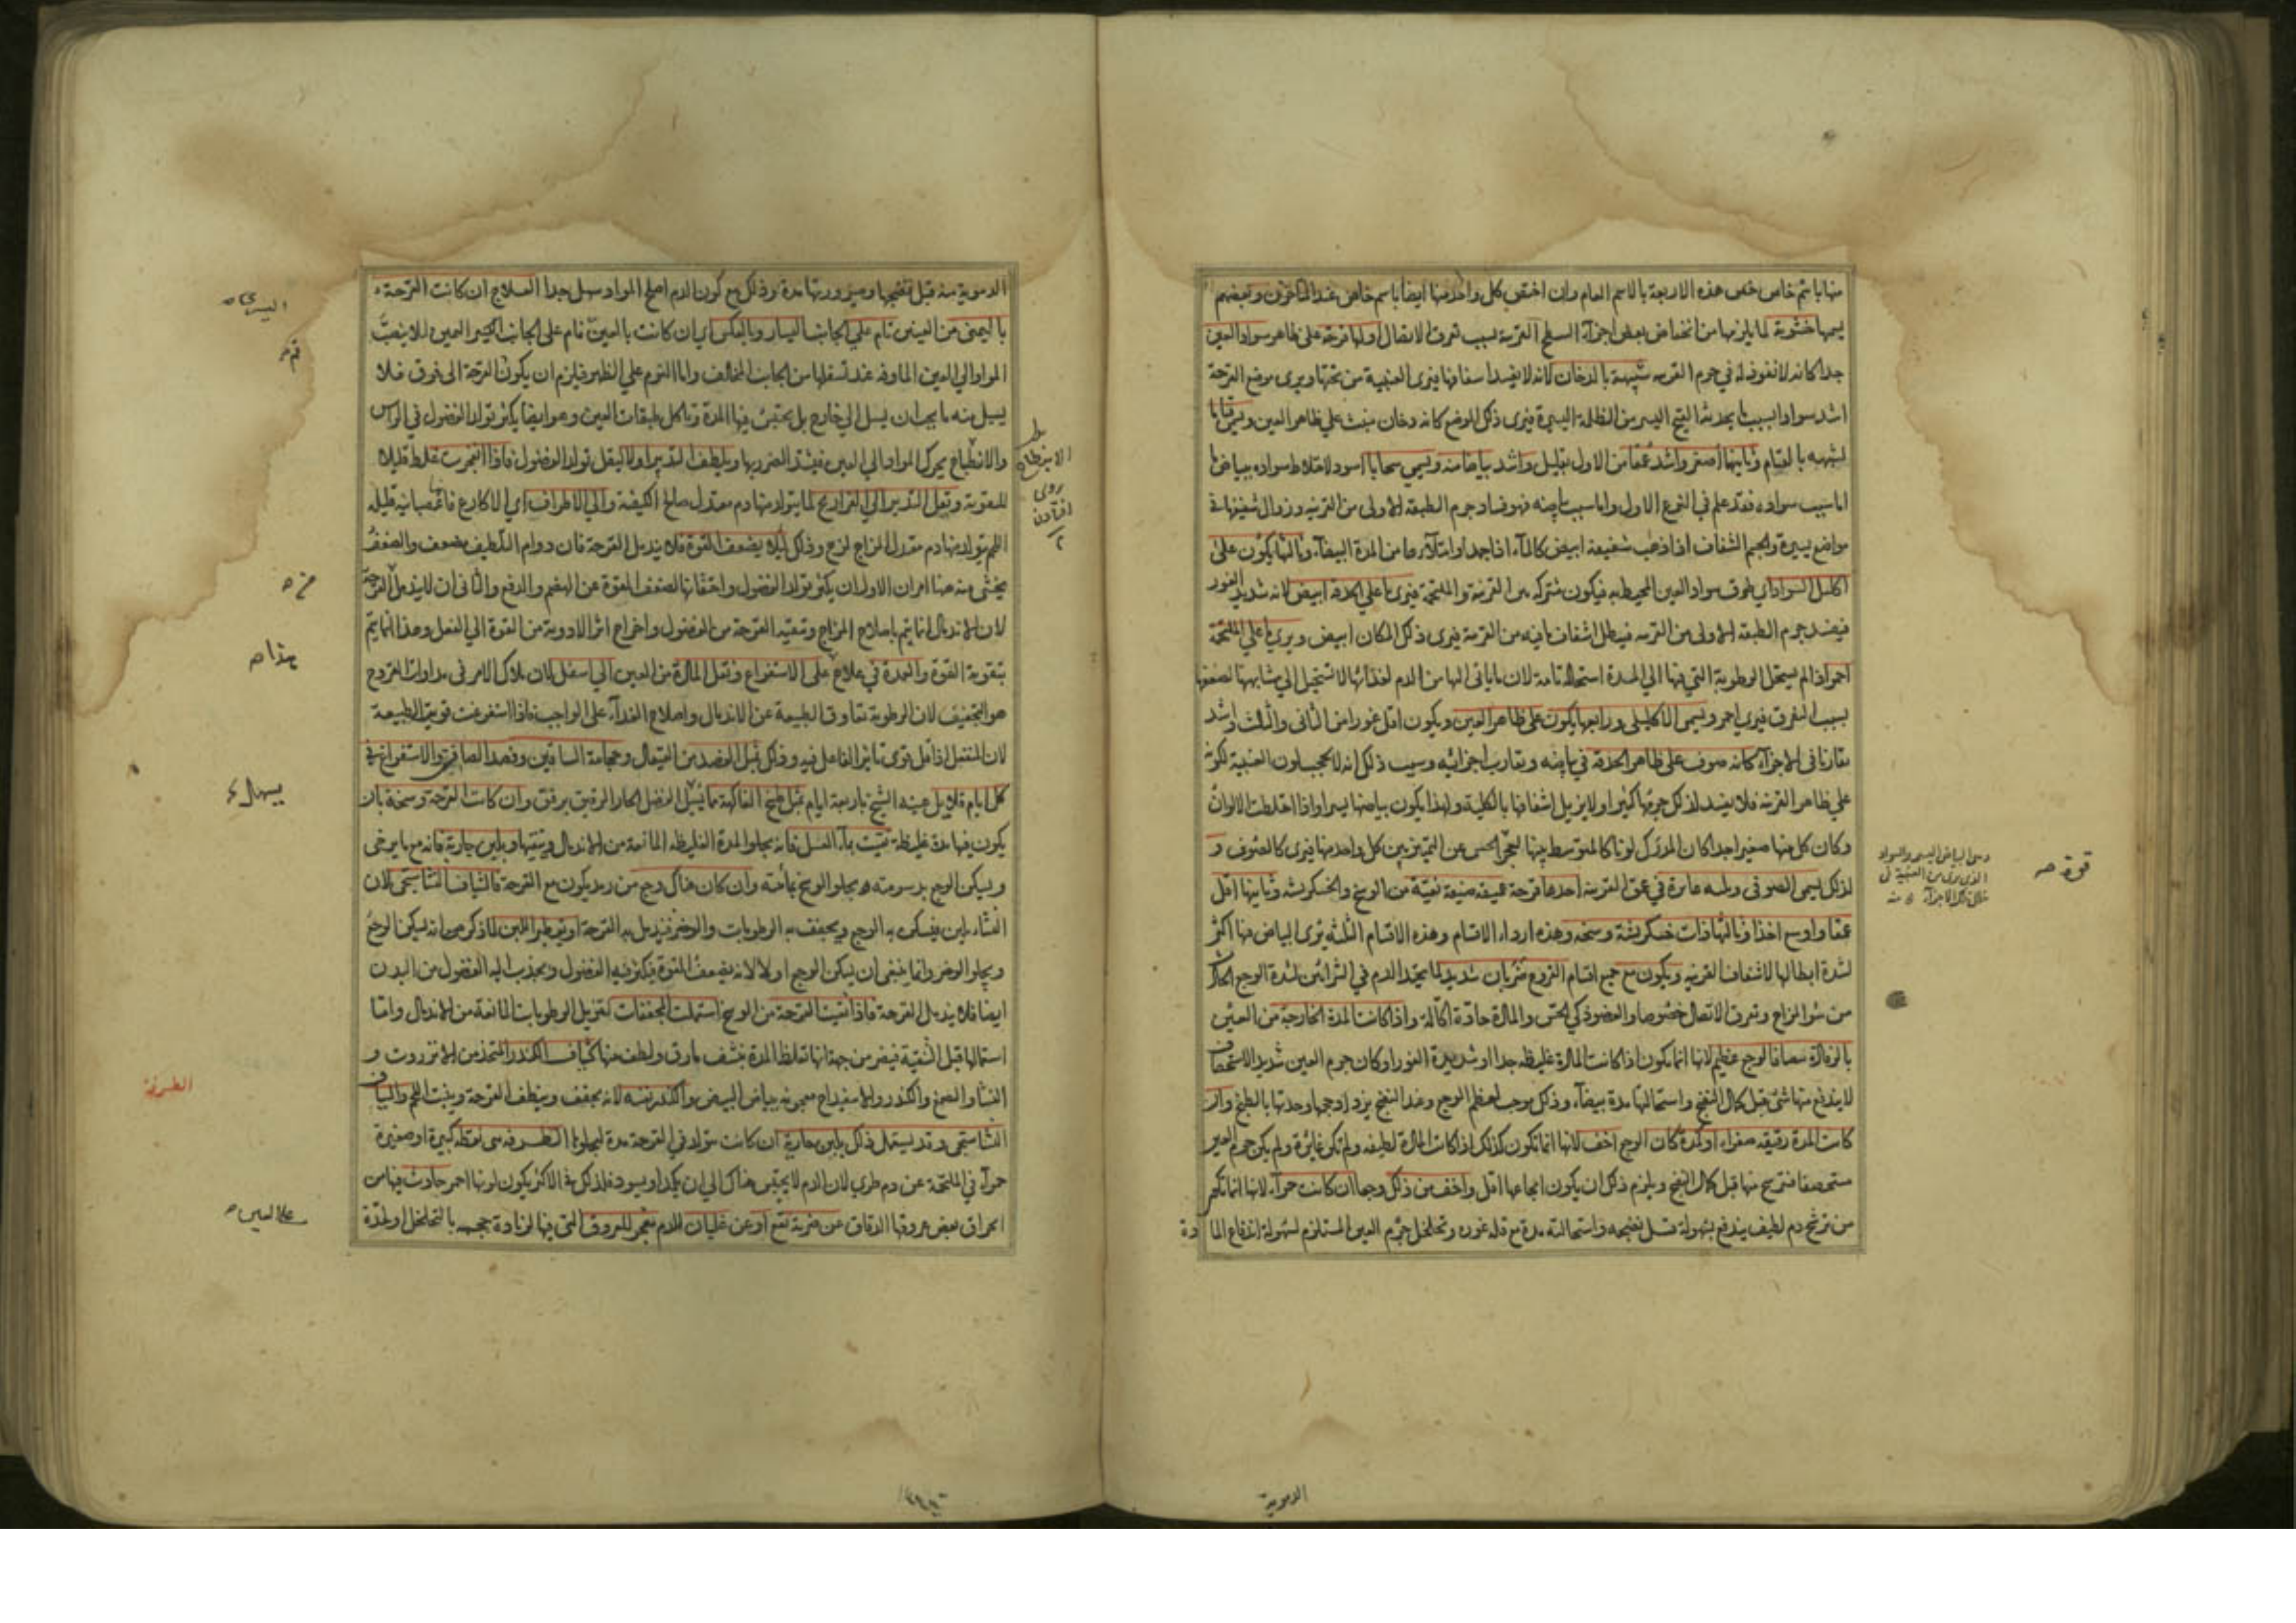 منها باسم خاص خص هذه الاربعة بالاسم العام وان اختص كل واحد منها ايضا باسم خاص عند المتاخرين وبعضهم
يسميها خشونة لما يلزمها من انخفاض بعض اجزاء السطح القرنية بسبب تفرق الاتصال اولها قرحة على ظاهر سواد العين
جدا كانه لا نفوذ له في جرم القرنيه شبيهة بالدخان لانه لا يفسد اشفافها فيرى العنبية من تحتها ويرى موضع القرحة
اشد سوادا بسبب ما يحدثه اليسير من الظلمة اليسيرة فيرى ذلك الموضع كانه دخان منبث على ظاهر العين ويسمى قتاما
لشبهه بالقتام وثانيها اصغر واشد عمقا من الاول بقليل واشد بياضا منه ويسمى سحابا اسود لاختلاط سواده ببياض ما
اما سبب سواده فقد علم في النوع الاول واما سبب بياضه فهو فساد جرم الطبقة الاولى من القرنيه وزوال شفيفها في
مواضع يسيرة والجسم الشفاف اذا ذهب شفيفه ابيض كالماء اذا جمد او امتلاء ما من المدة البيضاء وثالثها يكون على
اكليل السواد اي طرف سواد العين المحيط به فيكون مشتركه بين القرنية والملتحمة فيرى ما على الحدقة ابيض لانه شديد الغور
فيفسد جرم الطبقة الاولى من القرنيه فيبطل اشفاف ما فيه من القرنية فيرى ذلك المكان ابيض ويرى ما على الملتحمة
احمر اذا لم يستحل الرطوبة التي فيها الى المدة استحالة تامة لان ما ياتى اليها من الدم لغذائها لا تستحيل الى مشابهتها لضعفها
بسبب التفرق فيرى احمر ويسمى الاكليلى ورابعها يكون على ظاهر العين ويكون اقل غورا من الثانى والثالث واشد
تقاربا فى الاجزاء كانه صوف على ظاهر الحدقة في بياضه وتقارب اجزائه وسبب ذلك انه لا يحجب لون العنبية لكونه
على ظاهر القرنيه فلا يفسد لذلك جرمها كثيرا ولا يزيل اشفافها بالكلية ولهذا يكون بياضها يسيرا واذا اختلطت الالوان
وكان كل منها صغيرا جدا كان المدرك لونا كالمتوسط بينها لعجز الحس عن التمييز بين كل واحد منها فيرى كالصوف و
لذلك يسمى الصوفى وثلثه غايرة في عمق القرنيه احدها قرحة عميقه ضيقة نقية من الوسخ والخشكريشه وثانيها اقل
عمقا واوسع اخذا وثالثها ذات خشكريشة وسخه وهذه اردا الاقسام وهذه الاقسام الثلثه يرى البياض منها اكثر
لشدة ابطالها لاشفاف القرنيه ويكون مع جميع اقسام القروح ضربان شديد لما يحتد الدم في الشرائين لشدة الوجع الحاد
من سوء المزاج وتفرق الاتصال خصوصا والعضو ذكى الحس والمادة حادة اكالة واذا كانت المدة الخارجة من العين
بالرفادة معها فالوجع عظيم لانها انما تكون اذا كانت المادة غليظه جدا او شديدة الغور او كان جرم العين شديد الاستحصاف
لا يندفع منها شئ قبل كمال النضج واستحالتها مدة بيضاء وذلك يوجب لعظم الوجع وعند النضج يزداد حجمها وحدتها بالطبخ وان
كانت المدة رقيقه صفراء او كمدة كان الوجع اخف لانها انما تكون كذلك اذا كانت المادة لطيفه ولم تكن غايرة ولم يكن جرم العين
مستحصفا فتترشح منها قبل كمال النضج ويلزم ذلك ان يكون ايجاعها اقل واخف من ذلك وجعا ان كانت حمراء لانها انما تكون
من ترشح دم لطيف يندفع بسهولة قبل نضجه واستحالته مدة مع قلة غوره وتخلخل جرم العين المستلزم لسهولة اندفاع الما دة
قوة صح
الدموية
الدموية منه قبل نضجها وصيرورتها مدة وذلك مع كون الدم اصلح المواد وسهل جدا العلاج ان كانت القرحة
باليمنى من العينين نام على الجانب اليسار وبالعكس اى ان كانت بالعين نام على الجانب اليمين لئلا ينصب
المواد الى العين الماوفه عند تسفلها من الجانب المخالف واما النوم على الظهر فيلزم ان يكون القرحة الى فوق فلا
يسيل منه ما يجب ان يسيل الى خارج بل يحتقن فيها المدة وتاكل طبقات العين وهو ايضا يكثر تولد الفضول في الراس
والانبطاح يحرك المواد الى العين فيشتد الضرر بها ويلطف التدبير اولا ليقل تولد الفضول فاذا انفجرت غلظ قليلا
للتقوية ونقل التدبير الى الفراريج لما يتولد منها دم معتدل صالح الكيفية والى الاطراف اي الاكارع فانها عصبانيه قليله
اللحم يتولد منها دم معتدل المزاج لزج وذلك لئلا يضعف القوة فلا يندمل القرحة فان دوام التلطيف يضعف والضعف
يخشى منه ههنا امران الاول ان يكثر تولد الفضول واحتقانها لضعف القوة عن الهضم والدفع والثانى ان لا يندمل القرحة
لان الاندمال انما يتم باصلاح المزاج وتنقية القرحة من الفضول واخراج اثر الادوية من القوة الى الفعل وهذا انما يتم
بتقوية القوة والعمدة في علاج على الاستفراغ ونقل المادة من العين الى اسفل لان ملاك الامر فى مداواة القروح
هو التجفيف لان الرطوبة تعاوق الطبيعة عن الاندمال واصلاح الغذاء على الواجب فاذا استفرغت قويت الطبيعة
لان المنفعل اذا قل قوى تاثير الفاعل فيه وذلك مثل الفصد من القيفال وحجامة الساقين وفصد الصافن والاستفراغ في
كل ايام قلايل عينه الشيخ باربعة ايام بمثل طبيخ الفاكهة مما يسيل الفضل الحار الرقيق برفق وان كانت القرحة وسخة بان
يكون فيها مدة غليظة نقيت بماء العسل فانه يجلو المدة الغليظه المانعة من الاندمال وينقيها وبلبن جارية فانه مع ما يرخى
ويسكن الوجع بدسومته يجلو الوسخ بمائيته وان كان هناك وجع من رمد يكون مع القرحة فالشياف النشاستجى لان
النشاء يلين فيسكن به الوجع ويجفف به الرطوبات والوضر فيندمل به القرحة او يقطر اللبن لما ذكر من انه يسكن الوجع
ويجلو الوضر وانما ينبغى ان يسكن الوجع اولا لانه يضعف القوة فيكثر فيه الفضول ويجذب اليه الفضول من البدن
ايضا فلا يندمل القرحة فاذا نقيت القرحة من الوسخ استعملت المجففات لتزيل الرطوبات المانعة من الاندمال واما
استعمالها قبل التنقية فيضر من جهة انها تغلظ المدة بنشف مارق ولطف منها كشياف الكندر المتخذ من الانزروت و
النشا والصمغ والكندر والاسفيداج معجونه ببياض البيض والكندر نفسه لانه يجفف وينظف القرحة وينبت اللحم والشياف
النشاستجى وقد يستعمل ذلك بلبن جارية ان كانت متولد في القرحة مدة ليجلوها الطرفه هى نقطه كبيرة او صغيرة
حمراء في الملتحمة عن دم طرى لان الدم لا يحتبس هناك الى ان يكمد او يسود فلذلك في الاكثر يكون لونها احمر حادث فيها من
انخراق بعض عروقها الدقاق عن ضربة تقع او عن غليان الدم مفجر للعروق التى فيها لزيادة حجمه بالتخلخل او لحدة
الانبطاح
بروى افتادن
هذا صح
الطرفة